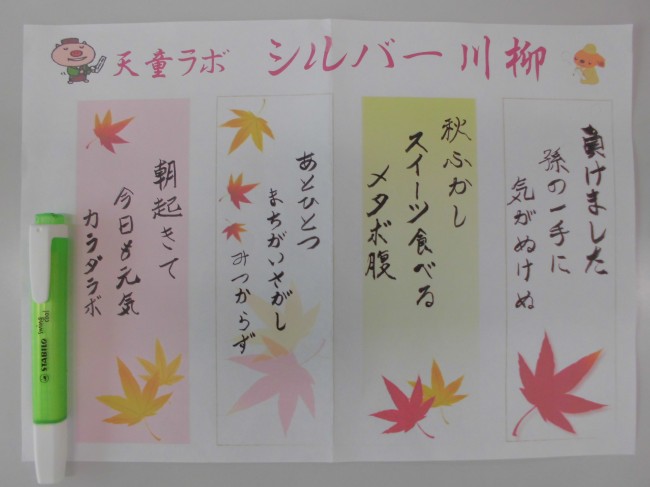 天童ラボ シルバー川柳
負けました
孫の一手に
気がぬけぬ
秋ふかし
スイーツ食べる
メタボ腹
あとひとつ
まちがいさがし
みつからず
朝起きて
今日も元気
カラダラボ
STABILO
swing cool